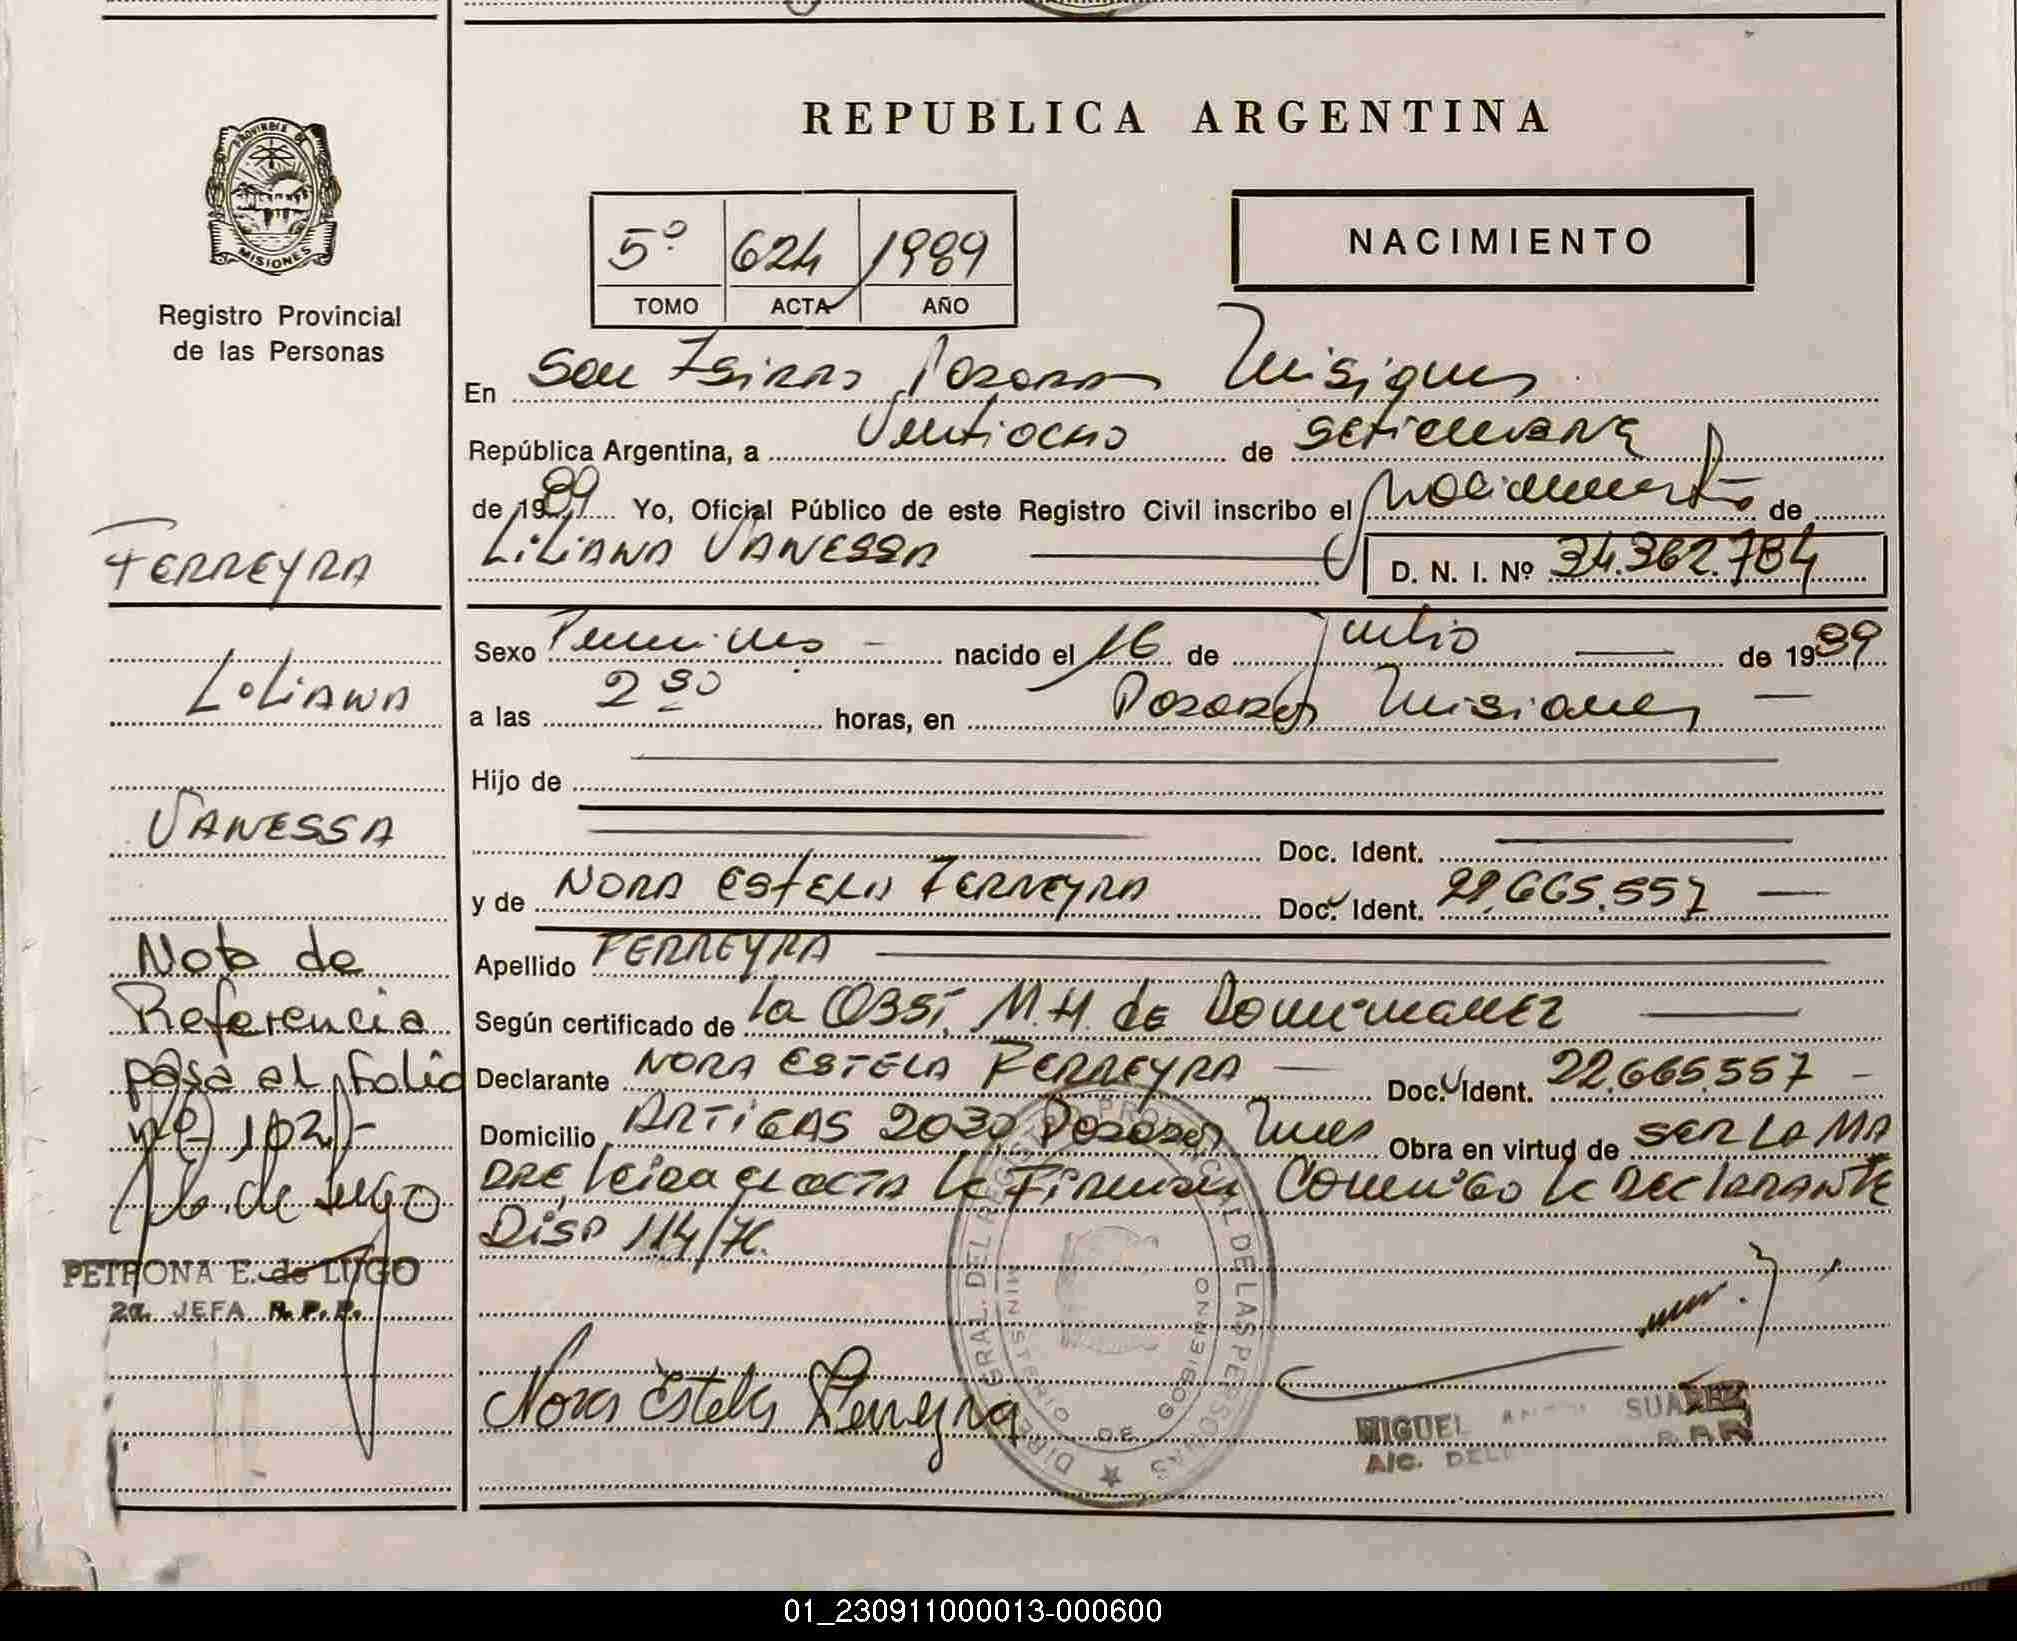 REPUBLICA ARGENTINA
PROVINCIA DE MISIONES
Registro Provincial
de las Personas
5º 624 1989
TOMO ACTA AÑO
NACIMIENTO
En San Isidro Posadas Misiones
República Argentina, a Ventiocho de Setiembre
de 1989 Yo, Oficial Público de este Registro Civil inscribo el Nacimiento de
LILIANA VANESSA D. N. I. Nº 34.362.784
Sexo Femenino nacido el 16 de Julio de 1989
a las 2 30 horas, en Posadas Misiones
Hijo de
Doc. Ident.
y de NORA ESTELA FERREYRA Doc. Ident. 22.665.557
Apellido FERREYRA
Según certificado de la Obst, M.H. de
Declarante NORA ESTELA FERREYRA Doc. Ident. 22.665.557
Domicilio ARTIGAS 2030 Posadas Mnes Obra en virtud de SER LA MA
DRE, leida el acta la Firma Conmigo la DECLARANTE
Disp 114/76.
Nora Estela Ferreyra
DIREC. GRAL. DEL REGISTRO PROVINCIAL DE LAS PERSONAS
MINISTERIO DE GOBIERNO
MIGUEL SUAREZ
FERREYRA
LILIANA
VANESSA
Nota de
Referencia
pasa al folio
Nº 102
de Lugo
PETRONA E. de LUGO
2a. JEFA R. P. P.
01_230911000013-000600